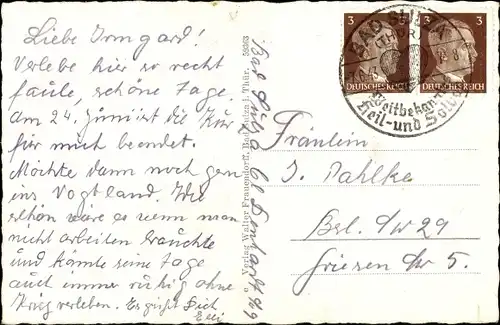 Liebe Irmgard!
Verlebe hier so recht
faule, schöne Tage.
Am 24. Juni ist die Kur
für mich beendet.
Möchte dann noch gern
ins Vogtland. Wie
schön wäre es wenn man
nicht arbeiten brauchte
und könnte seine Tage
auch immer ruhig ohne
Krieg verleben. Es grüßt Dich
Elli
Bad Sulza
© Verlag Walter Frauendorff, Bad Sulza i. Thür. 59363
3 3
DEUTSCHES REICH DEUTSCHES REICH
BAD SULZA
(THÜR)
Weitbekanntes
Heil- und
Fräulein
I. Dahlke
Bln. SW 29
Gneisen 5.